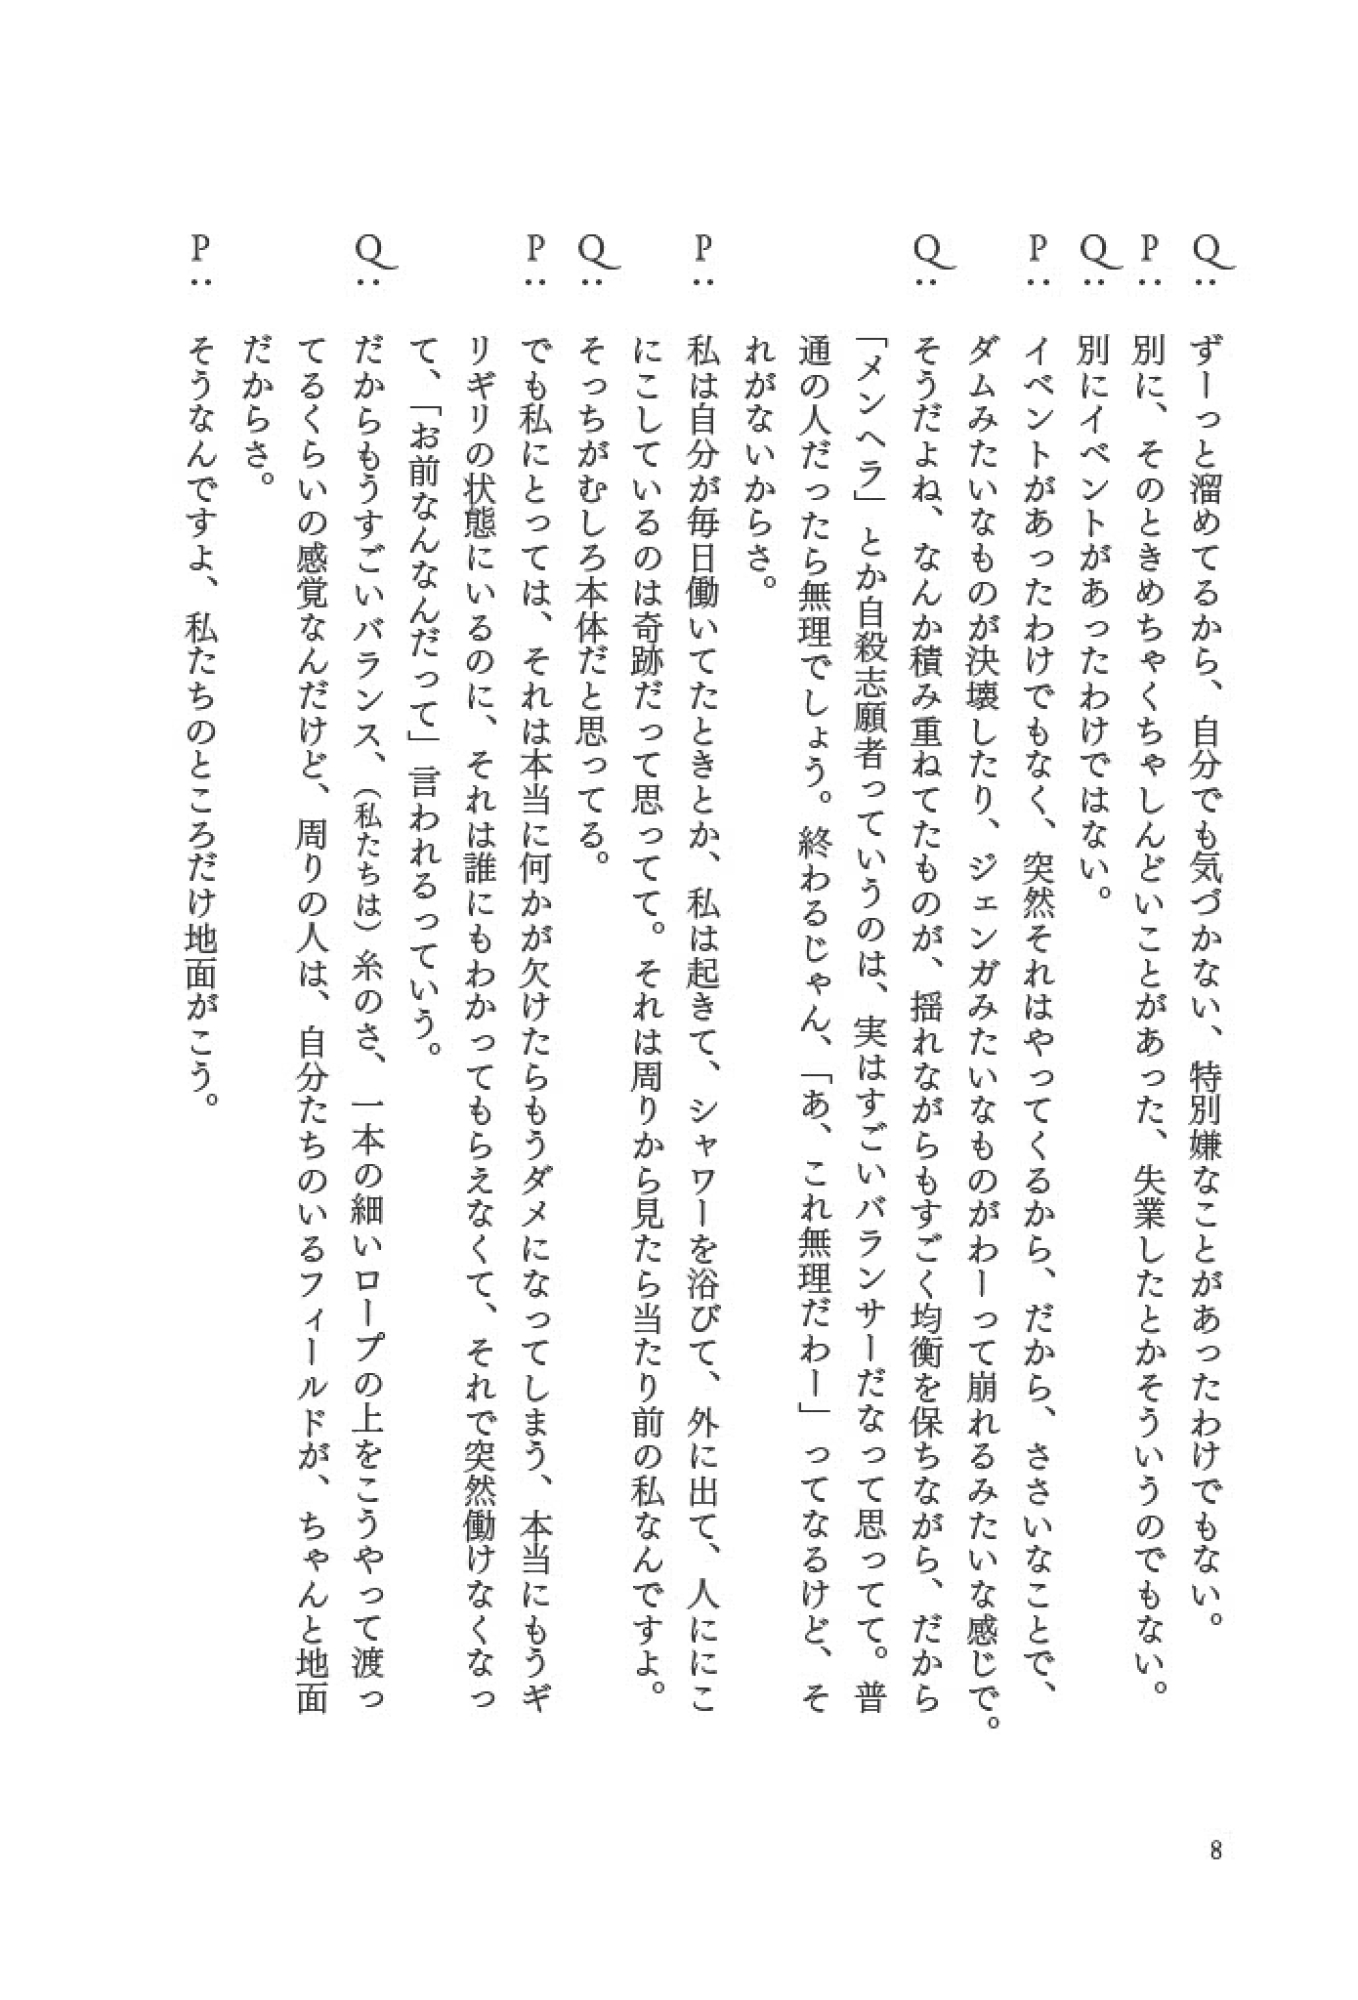 Q：ずーっと溜めてるから、自分でも気づかない、特別嫌なことがあったわけでもない。
P：別に、そのときめちゃくちゃしんどいことがあった、失業したとかそういうのでもない。
Q：別にイベントがあったわけではない。
P：イベントがあったわけでもなく、突然それはやってくるから、だから、ささいなことで、
ダムみたいなものが決壊したり、ジェンガみたいなものがわーって崩れるみたいな感じで。
Q：そうだよね、なんか積み重ねてたものが、揺れながらもすごく均衡を保ちながら、だから
「メンヘラ」とか自殺志願者っていうのは、実はすごいバランサーだなって思ってて。普
通の人だったら無理でしょう。終わるじゃん、「あ、これ無理だわー」ってなるけど、そ
れがないからさ。
P：私は自分が毎日働いてたときとか、私は起きて、シャワーを浴びて、外に出て、人ににこ
にこしているのは奇跡だって思ってて。それは周りから見たら当たり前の私なんですよ。
Q：そっちがむしろ本体だと思ってる。
P：でも私にとっては、それは本当に何かが欠けたらもうダメになってしまう、本当にもうギ
リギリの状態にいるのに、それは誰にもわかってもらえなくて、それで突然働けなくなっ
て、「お前なんなんだって」言われるっていう。
Q：だからもうすごいバランス、（私たちは）糸のさ、一本の細いロープの上をこうやって渡っ
てるくらいの感覚なんだけど、周りの人は、自分たちのいるフィールドが、ちゃんと地面
だからさ。
P：そうなんですよ、私たちのところだけ地面がこう。
8